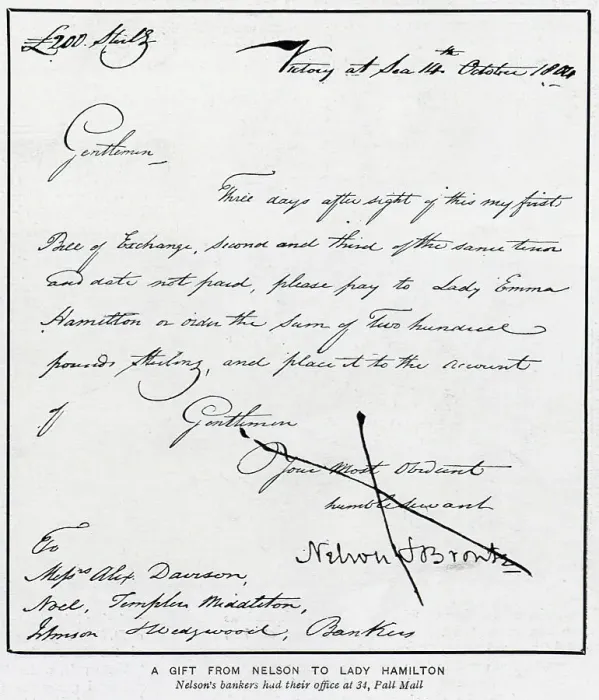 £200. Sterlg
Victory at Sea 14th October 1804
Gentlemen
Three days after sight of this my first
Bill of Exchange, second and third of the same tenor
and date not paid, please pay to Lady Emma
Hamilton or order the Sum of Two hundred
pounds Sterling, and place it to the account
of Gentlemen
Your Most Obedient
humble Servant
Nelson & Bronte
To
Messrs Alex. Davison,
Noel, Templer Middleton,
Johnson & Wedgwood, Bankers
A GIFT FROM NELSON TO LADY HAMILTON
Nelson's bankers had their office at 34, Pall Mall